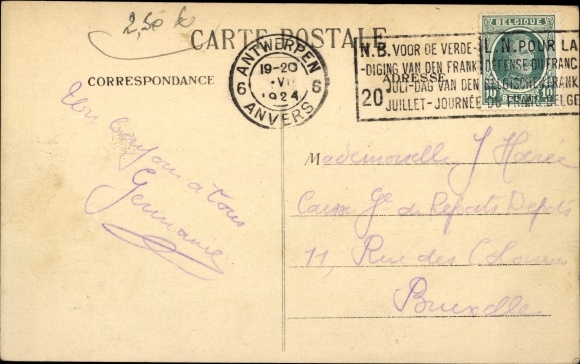 2,50 k
CARTE POSTALE
BELGIQUE
ANTWERPEN
19-20
VII
1924
6 6
ANVERS
N.B. VOOR DE VERDE- L.N. POUR LA
-DIGING VAN DEN FRANK DEFENSE DU FRANC
JULI-DAG VAN DEN BELGISCHEN FRANK
20
JUILLET-JOURNÉE DU FRANC BELGE
10 10
CORRESPONDANCE
ADRESSE
Un bonjour à tous
Germaine
Mademoiselle J
de Reports Depots
11, Rue des
Bruxelles